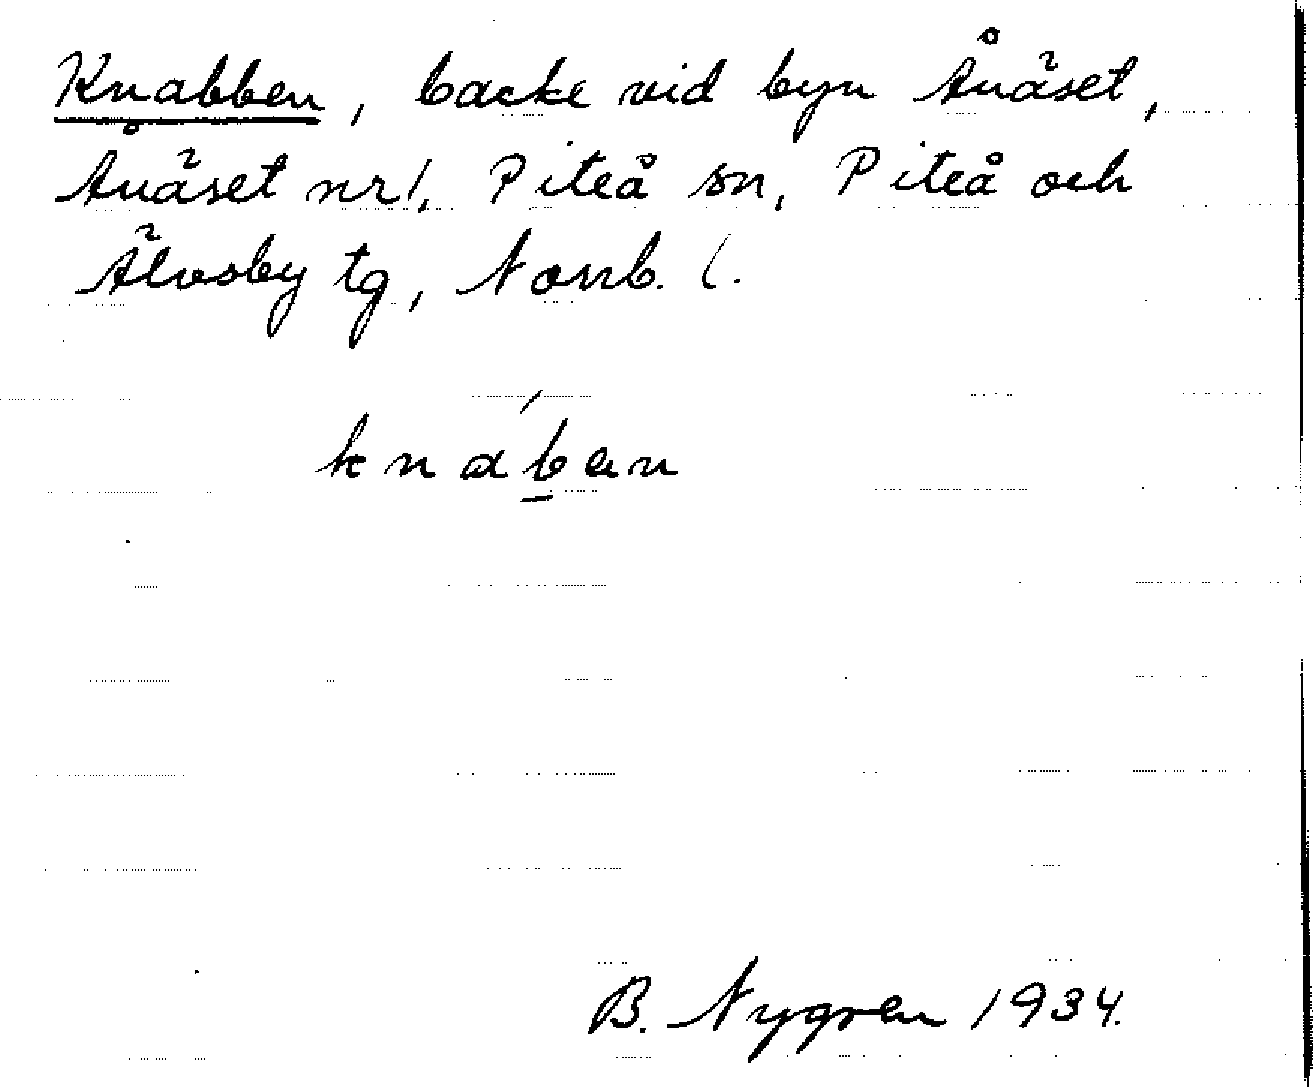 Knabben, backe vid byn Ånäset,
Ånäset nr 1, Piteå sn, Piteå och
Älvsby tg, Norrb. l.
knáb̲en
B. Nygren 1934.